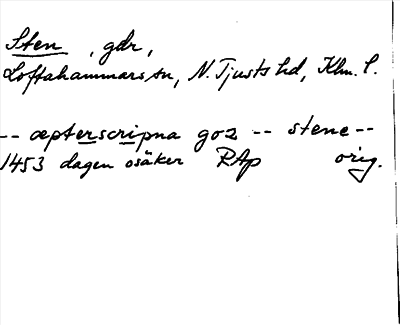 Sten, gdr,
Loftahammars sn, N. Tjusts hd, Klm. l.
-- æpterscripna goz -- stene --
1453 dagen osäker RAp orig.